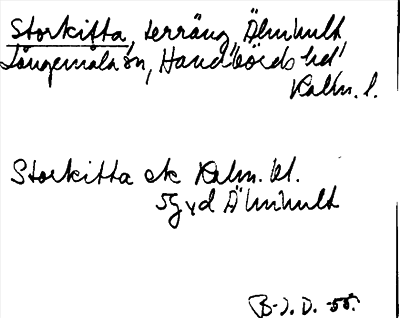 Storkitta, terräng, Älmhult
Långemåla sn, Handbörds hd
Kalm. l.
Storkitta ek Kalm. bl.
5g x d Älmhult
B-J. D. -55.